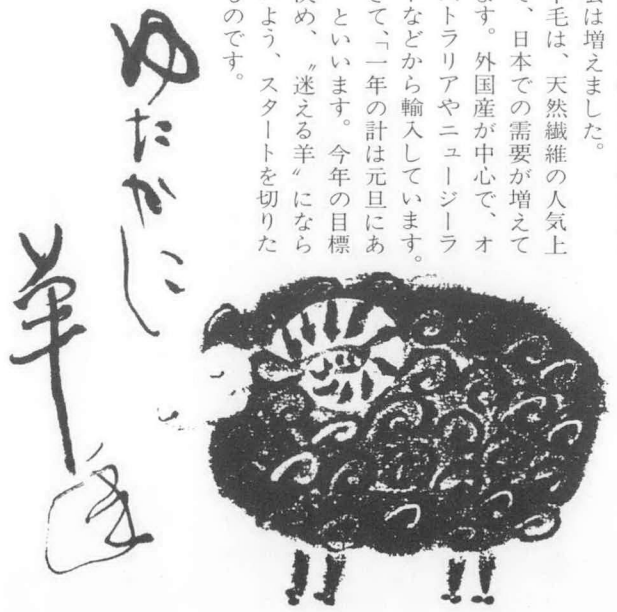 は増えました。
羊毛は、天然繊維の人気上
、日本での需要が増えて
ます。外国産が中心で、オ
ストラリアやニュージーラ
などから輸入しています。
さて、「一年の計は元旦にあ
といいます。今年の目標
決め、〝迷える羊〟になら
よう、スタートを切りた
ものです。
ゆたかに
羊